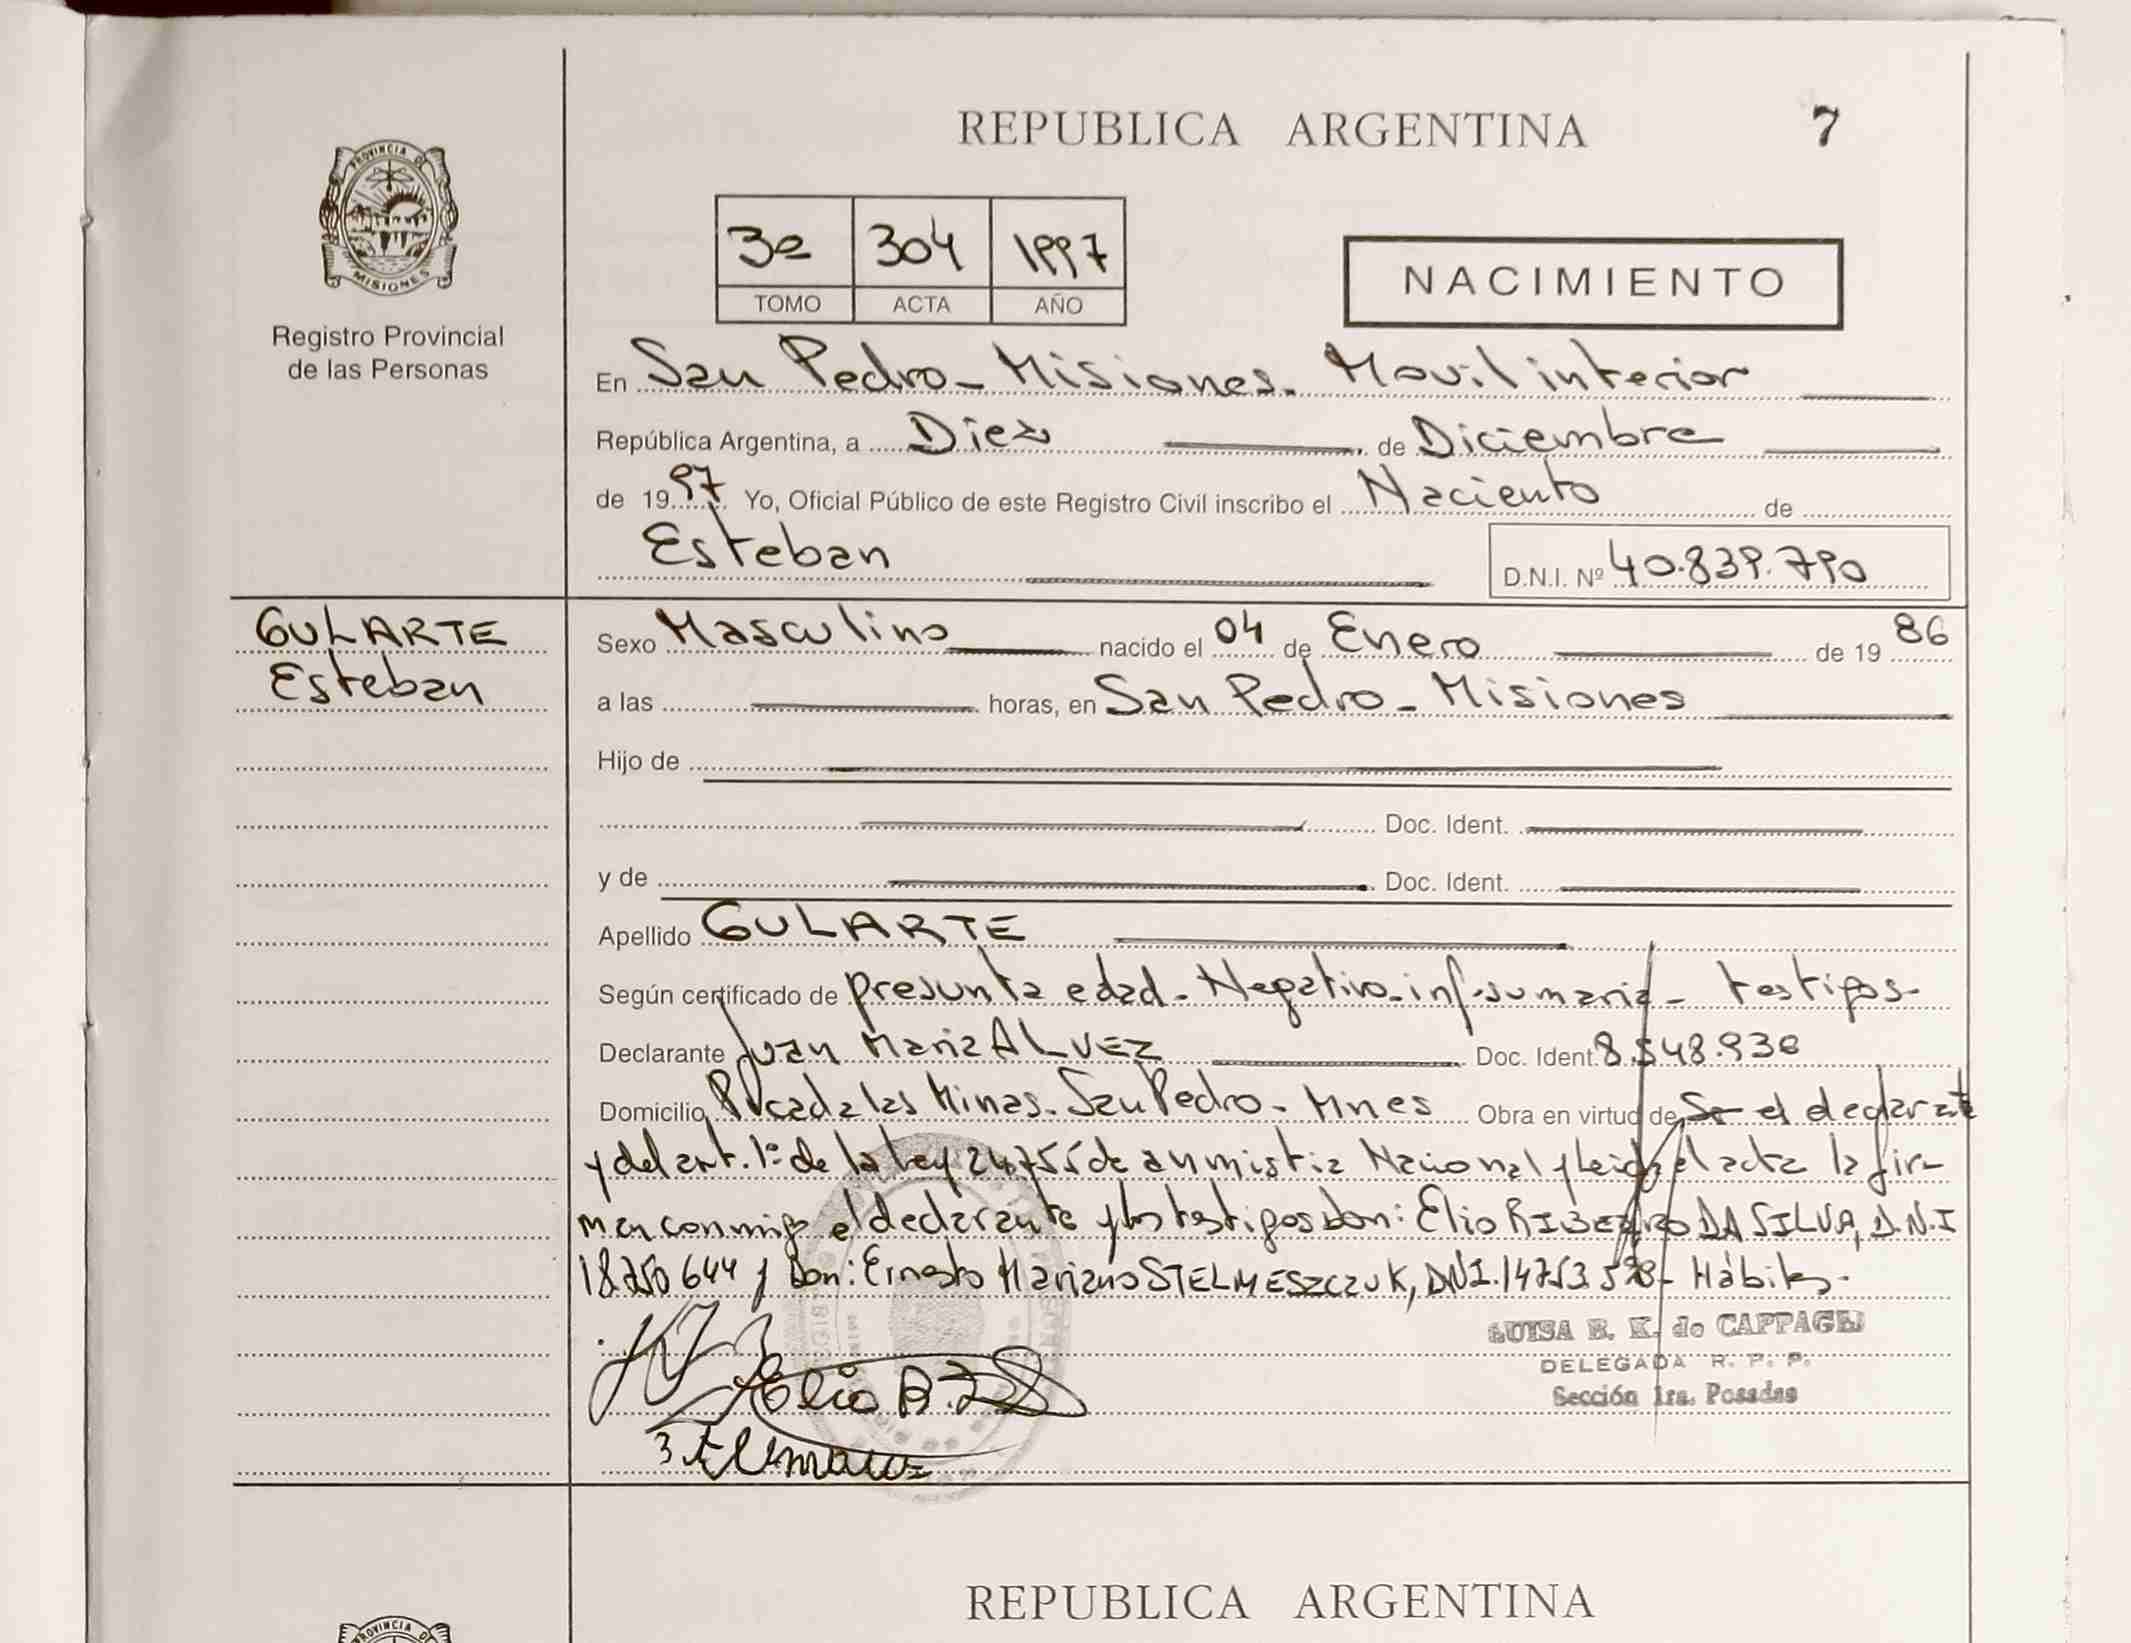 REPUBLICA ARGENTINA
7
PROVINCIA DE
MISIONES
Registro Provincial
de las Personas
3º 304 1997
TOMO ACTA AÑO
NACIMIENTO
En San Pedro - Misiones. Movil interior
República Argentina, a Diez de Diciembre
de 1997 Yo, Oficial Público de este Registro Civil inscribo el Naciento de
Esteban D.N.I. Nº 40.839.790
GULARTE
Esteban
Sexo Masculino nacido el 04 de Enero de 1986
a las horas, en San Pedro - Misiones
Hijo de
Doc. Ident.
y de Doc. Ident.
Apellido GULARTE
Según certificado de presunta edad - Negativo - inf. sumaria - testigos -
Declarante Juan Maria ALVEZ Doc. Ident. 8.548.930
Domicilio Picada las Minas - San Pedro - Mnes Obra en virtud de Se el declarante
y del art. 1º de la Ley 24.755 de anmistia Nacional y leida el acta la fir-
man conmigo el declarante y los testigos don: Elio RIBEIRO DA SILVA, D.N.I
18.750 644 y Don: Ernesto Mariano STELMESZCZUK, DNI. 14753 598 - Hábiles -
LUISA B. K. de CAPPAGLI
DELEGADA R. P. P.
Sección 1ra. Posadas
Elio
REPUBLICA ARGENTINA
PROVINCIA DE